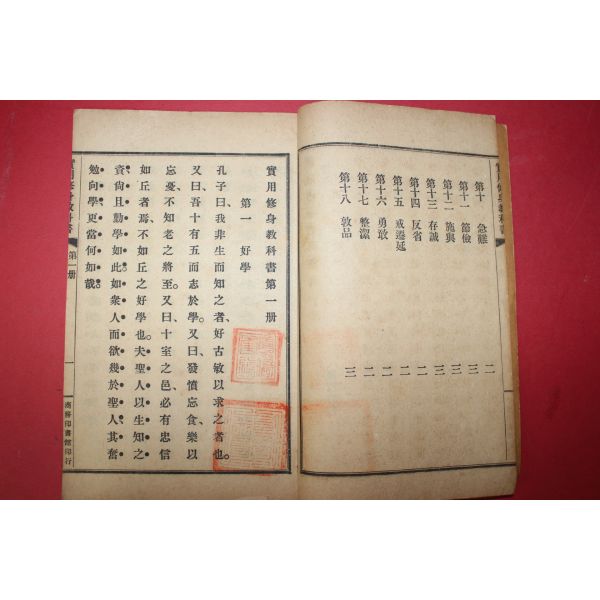 實用修身教科書
第十 急難 二
第十一 節儉 三
第十二 施與 三
第十三 存誠 三
第十四 反省 二
第十五 戒遷延 二
第十六 勇敢 二
第十七 整潔 二
第十八 敦品 三
實用修身教科書第一册
第一 好學
孔子曰、我非生而知之者、好古敏以求之者也。
又曰、吾十有五而志於學。又曰、發憤忘食、樂以
忘憂、不知老之將至。又曰、十室之邑、必有忠信
如丘者焉、不如丘之好學也。夫聖人以生知之
資、尚且勤學如此、如衆人而欲幾於聖人、其奮
勉向學、更當何如哉。
實用修身教科書
第一册
一
商務印書館印行